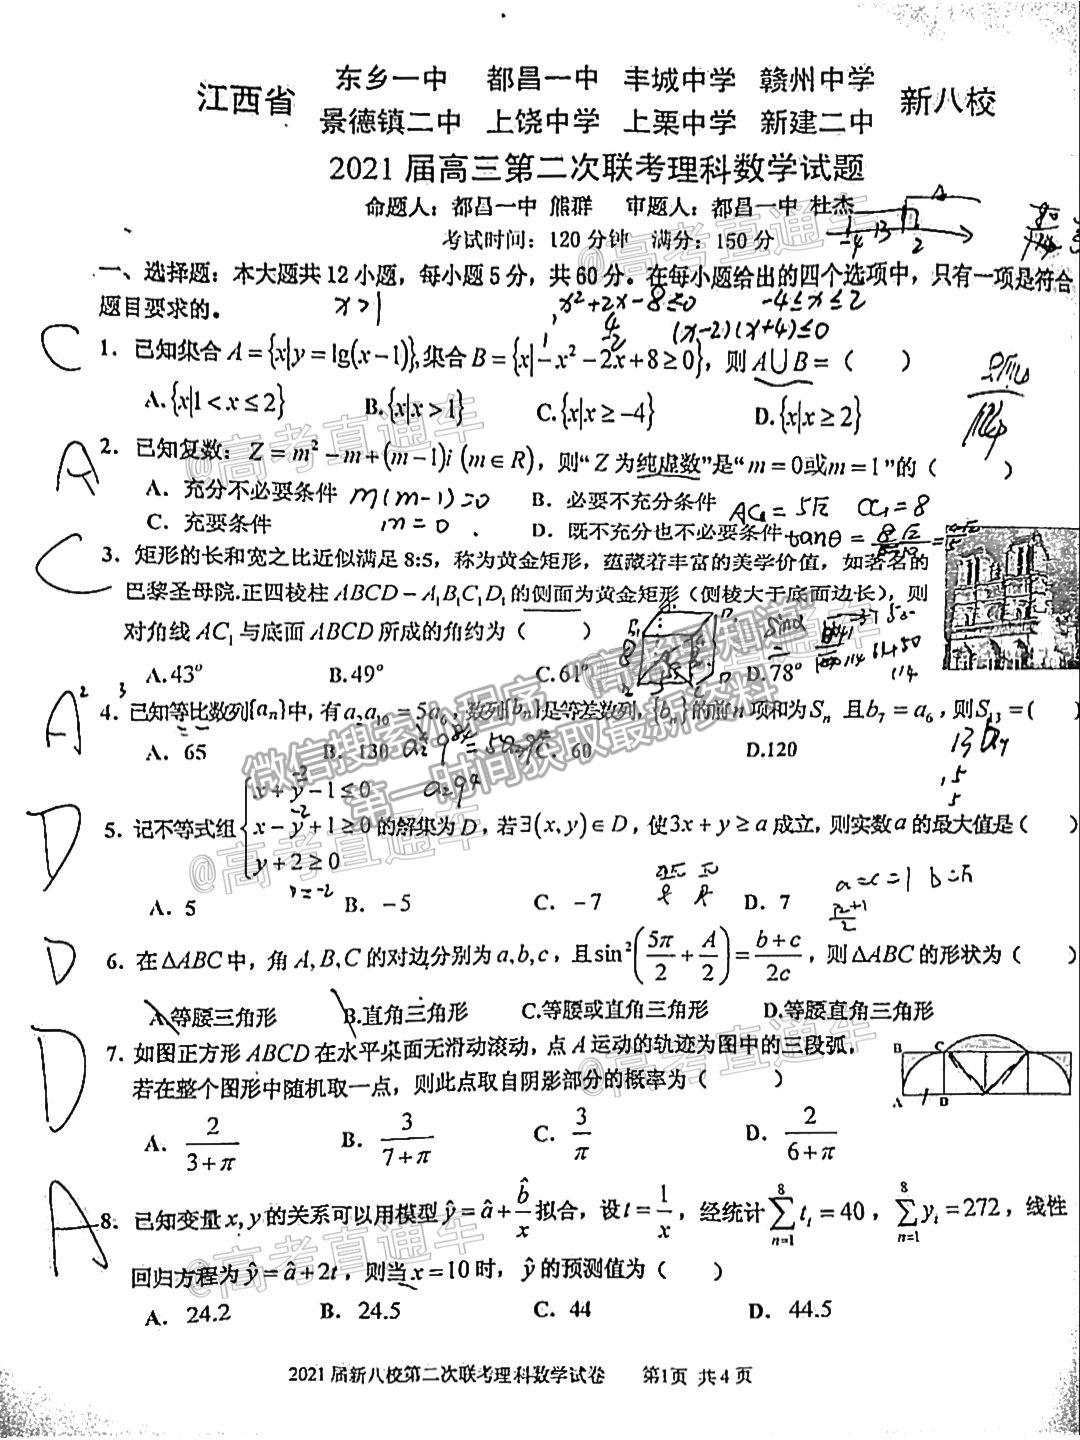 江西省 东乡一中 都昌一中 丰城中学 赣州中学 新八校
景德镇二中 上饶中学 上栗中学 新建二中
2021届高三第二次联考理科数学试题
命题人：都昌一中 熊群 审题人：都昌一中 杜杰
考试时间：120分钟 满分：150分
一、选择题：本大题共12小题，每小题5分，共60分。在每小题给出的四个选项中，只有一项是符合
题目要求的。 x>1 x²+2x-8≤0 -4≤x≤2
(x-2)(x+4)≤0
C 1. 已知集合A={x|y=lg(x-1)},集合B={x|-x²-2x+8≥0}，则A∪B=（ ）
A.{x|1<x≤2} B.{x|x>1} C.{x|x≥-4} D.{x|x≥2}
A 2. 已知复数：Z=m²-m+(m-1)i (m∈R)，则“Z为纯虚数”是“m=0或m=1”的（ ）
A. 充分不必要条件 m(m-1)=0 B. 必要不充分条件 AC₁=5√2 CC₁=8
C. 充要条件 m=0 D. 既不充分也不必要条件 tanθ=
C 3. 矩形的长和宽之比近似满足8:5，称为黄金矩形，蕴藏着丰富的美学价值，如著名的
巴黎圣母院.正四棱柱ABCD-A₁B₁C₁D₁的侧面为黄金矩形（侧棱大于底面边长），则
对角线AC₁与底面ABCD所成的角约为（ ）
A.43° B.49° C.61° D.78°
A 4. 已知等比数列{aₙ}中,有a₃a₁₀=5a₆，数列{bₙ}是等差数列，{bₙ}的前n项和为Sₙ 且b₇=a₆,则S₁₃=（ ）
A. 65 B. 130 C. 60 D.120 13b₇
D 5. 记不等式组{x+y-1≤0 x-y+1≥0 y+2≥0的解集为D，若∃(x,y)∈D，使3x+y≥a成立，则实数a的最大值是（ ）
A. 5 B. -5 C. -7 D. 7
D 6. 在△ABC中，角A,B,C的对边分别为a,b,c，且sin²(5π/2+A/2)=(b+c)/2c，则△ABC的形状为（ ）
A.等腰三角形 B.直角三角形 C.等腰或直角三角形 D.等腰直角三角形
D 7. 如图正方形ABCD在水平桌面无滑动滚动，点A运动的轨迹为图中的三段弧，
若在整个图形中随机取一点，则此点取自阴影部分的概率为（ ）
B C
A D
A. 2/(3+π) B. 3/(7+π) C. 3/π D. 2/(6+π)
A 8. 已知变量x,y的关系可以用模型ŷ=â+b̂/x拟合，设t=1/x，经统计∑(n=1→8)tᵢ=40，∑(n=1→8)yᵢ=272，线性
回归方程为ŷ=â+2t，则当x=10时，ŷ的预测值为（ ）
A. 24.2 B. 24.5 C. 44 D. 44.5
2021届新八校第二次联考理科数学试卷 第1页 共4页
@高考直通车
微信搜索小程序 高考早知道
第一时间获取最新资料